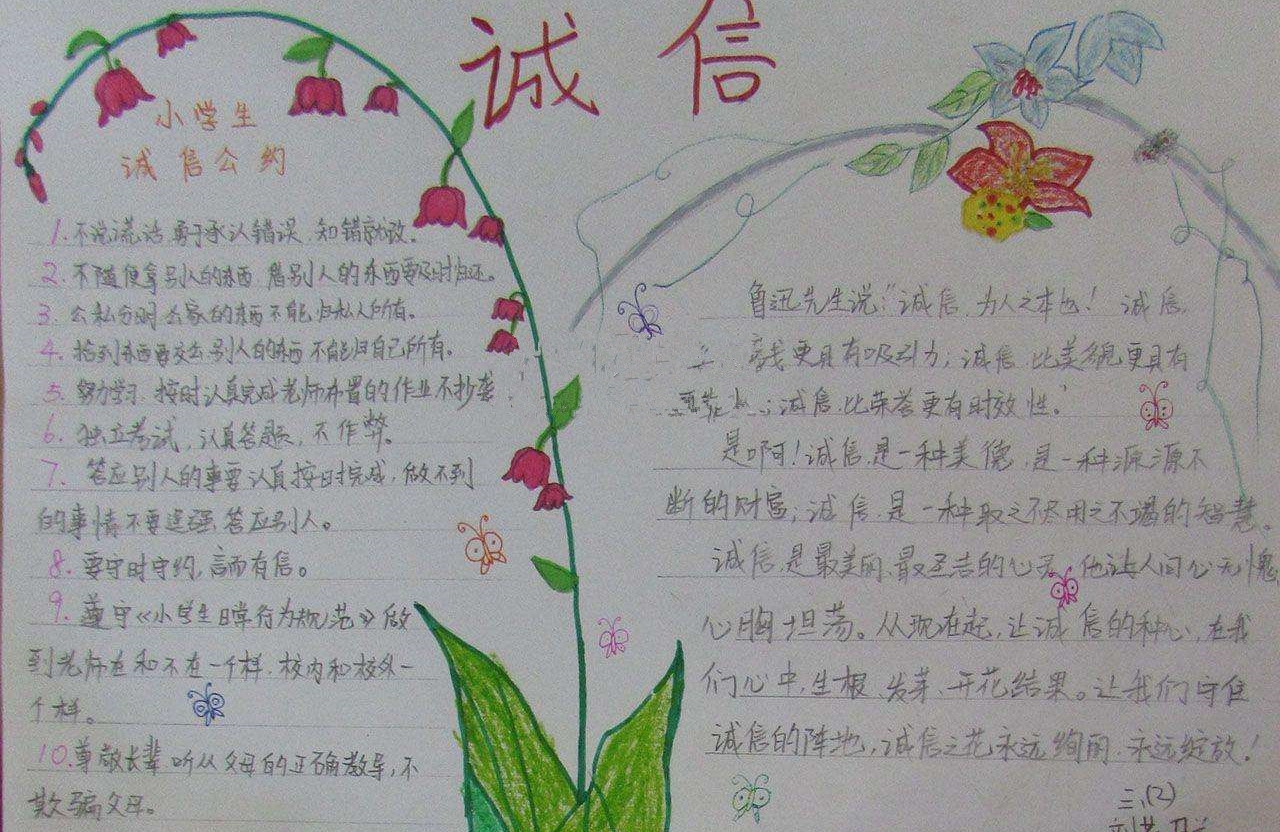 诚信
小学生
诚信公约
1.不说谎话,勇于承认错误,知错就改。
2.不随便拿别人的东西,借别人的东西要及时归还。
3.公私分明公家的东西不能归私人所有。
4.拾到东西要交公别人的东西不能归自己所有。
5.努力学习,按时认真完成老师布置的作业不抄袭。
6.独立考试,认真答题,不作弊。
7.答应别人的事要认真按时完成,做不到
的事情不要逞强答应别人。
8.要守时守约,言而有信。
9.遵守《小学生日常行为规范》做
到老师在和不在一个样,校内和校外一
个样。
10.尊敬长辈听从父母的正确教导,不
欺骗父母。
鲁迅先生说:“诚信,为人之本也!诚信,
比金钱更具有吸引力;诚信,比美貌更具有
诚信,比荣誉更有时效性。”
是啊!诚信,是一种美德,是一种源源不
断的财富;诚信,是一种取之不尽用之不竭的智慧。
诚信,是最美丽、最圣洁的心灵,他让人问心无愧,
心胸坦荡。从现在起,让诚信的种心,在我
们心中,生根、发芽、开花结果。让我们守住
诚信的阵地,诚信之花永远绚丽,永远绽放!
三、(2)